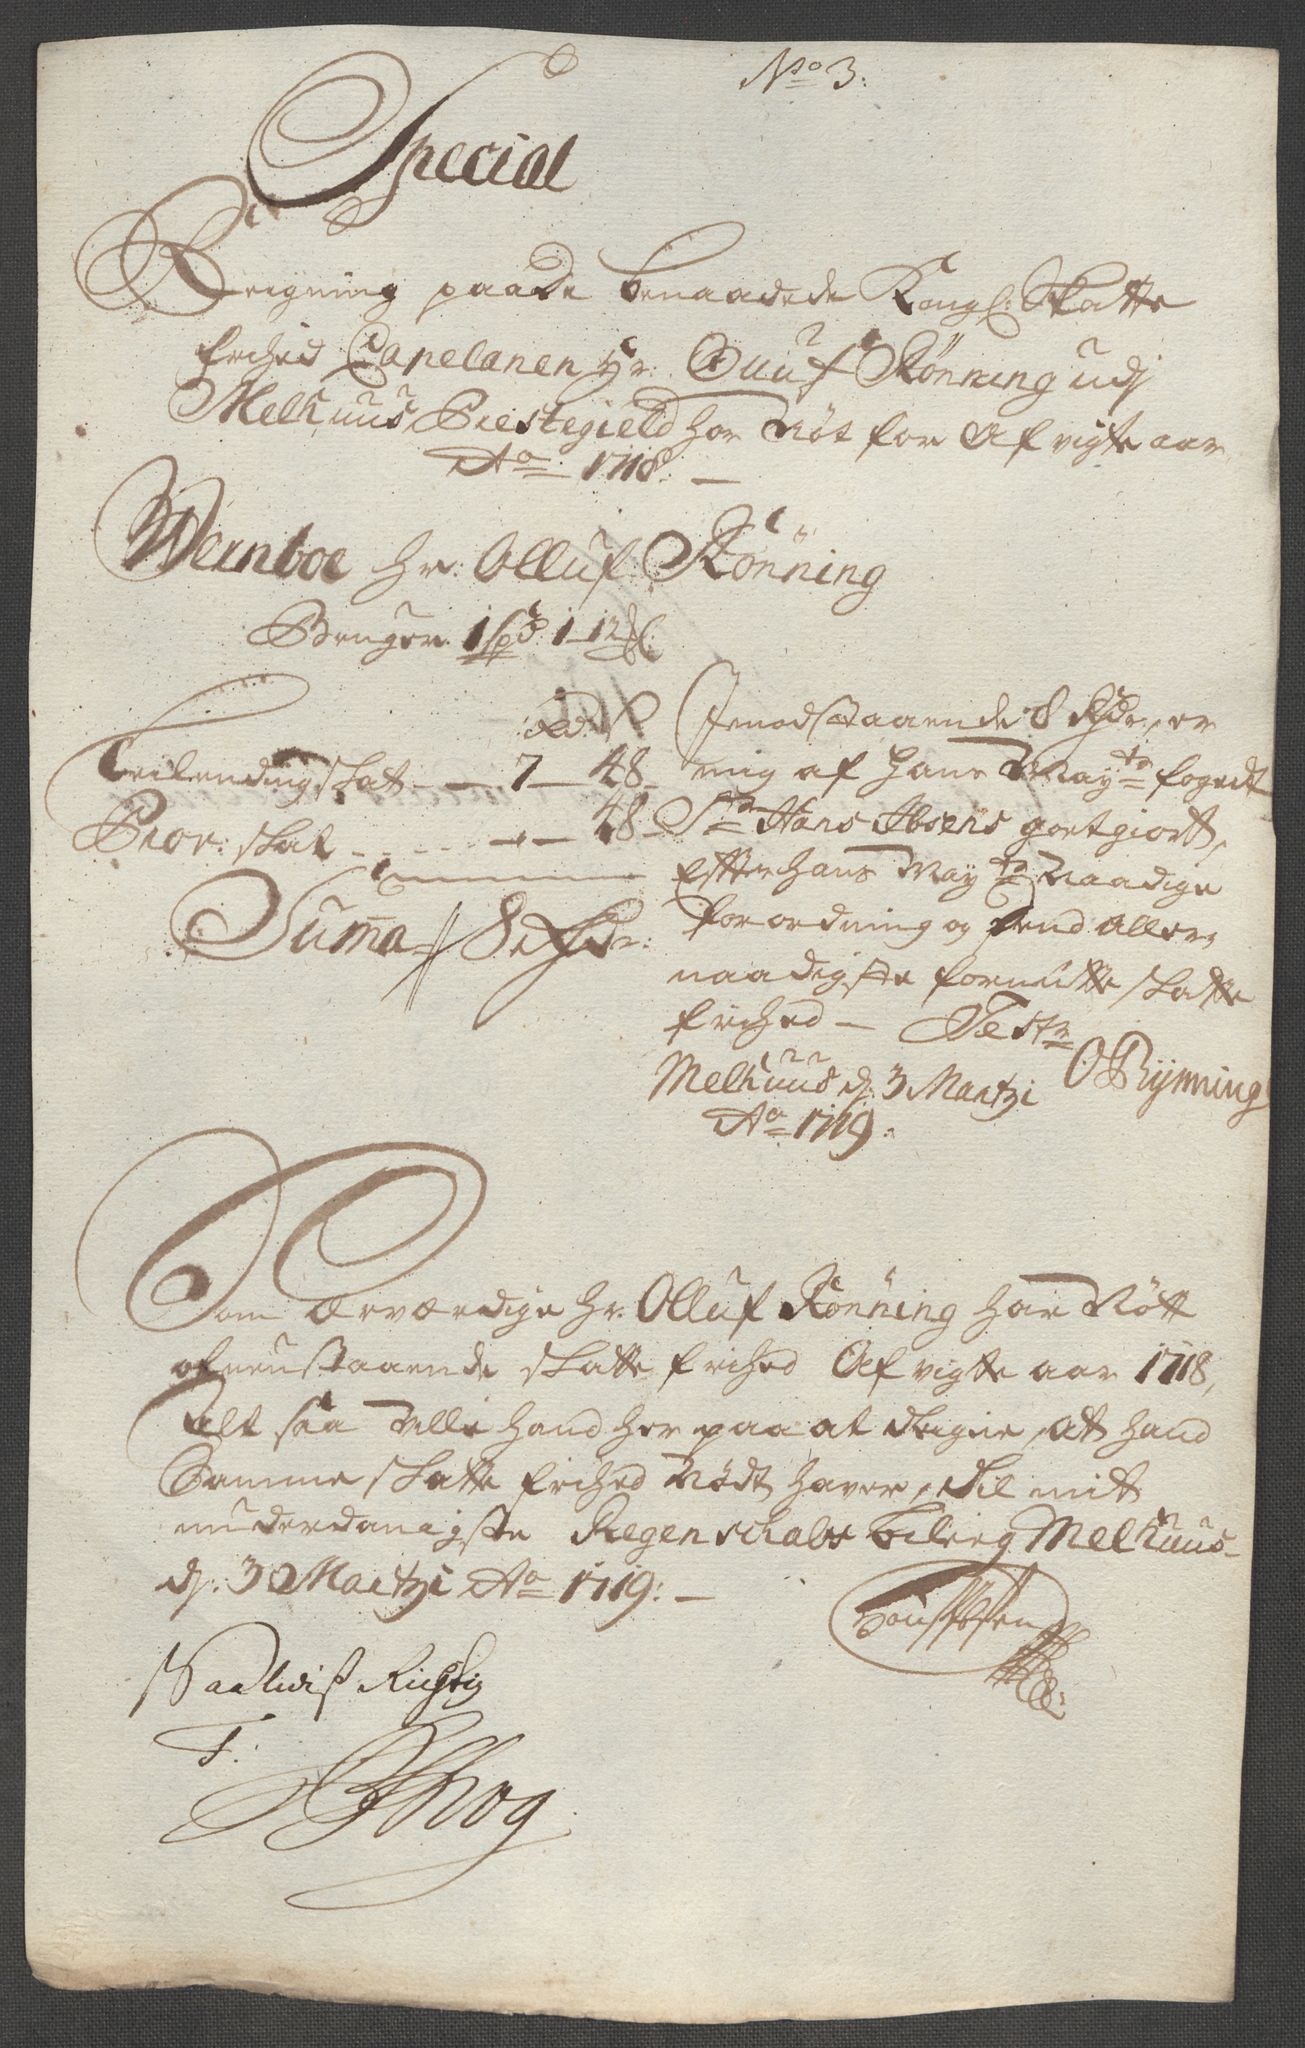 No 3:
Special
Reigning paa de benaadede Kongl: Skatte
frihed Capelanen Hr: Oluf Rönning udj
Melhuus Prestegield har Nøt for Afvigte aar
Ao 1718. —
Wernboe Hr: Olluf Rönning
Bruger 1 spd 1–12 Ml:
rd: s
Leilending skat — 7 — 48 —
Prov: skat - - - — 48 —
Suma // 8 Rdr:
Imodstaaende 8 Rdr, er
mig af Hans Mayts foget
Sr Hans Ibsens gotgiort,
Efter hans Mayts Naadige
forordning og dend aller,
naadigste forundte skatte
frihed — Test
Melhuus d: 3 Martzi
Ao 1719:
ORÿnning
Som Ærværdige Hr: Olluf Rönning har Nött
ofvenstaaende skatte frihed Afvigte aar 1718,
alt saa ville hand her paa at tegne, at hand
Samme skatte frihed Nødt haver, til mit
underdanigste Regenskabs bilag Melhuus
d: 3 Martzi Ao 1719: —
Hans Ibsen
Saaledis Rigtig
T: